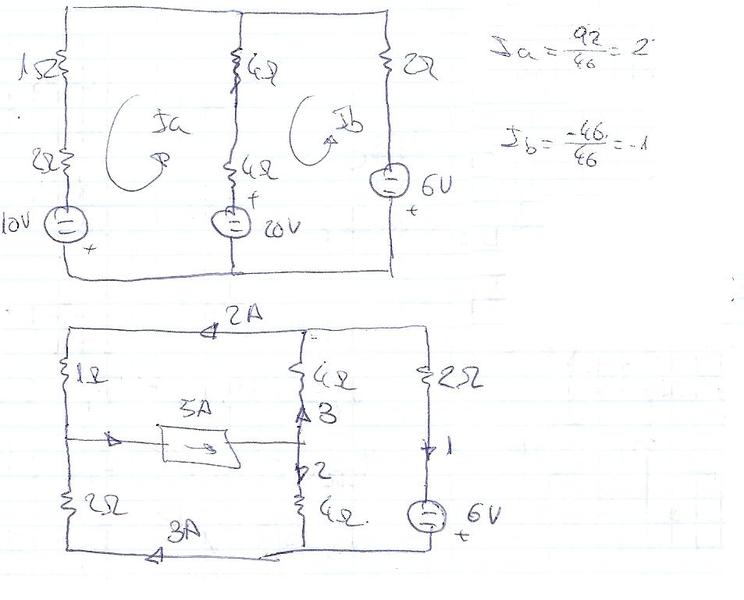 1Ω
4Ω
2Ω
Ia = 92/46 = 2
Ia
Ib
Ib = -46/46 = -1
2Ω
4Ω
6V
+
+
10V
20V
+
2A
1Ω
4Ω
2Ω
5A
3
1
2
2Ω
4Ω
6V
+
3A